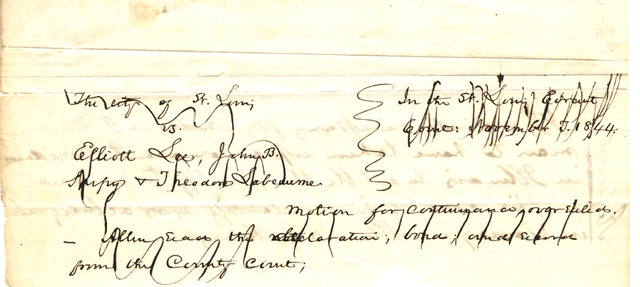 The city of St. Louis,
vs.
Elliott Lee, John B.
& Theodore Labeaume
In the St. Louis Circuit
Court: November T. 1844.
Motion for continuance overruled.
the declaration, bond, and record
from the County Court;